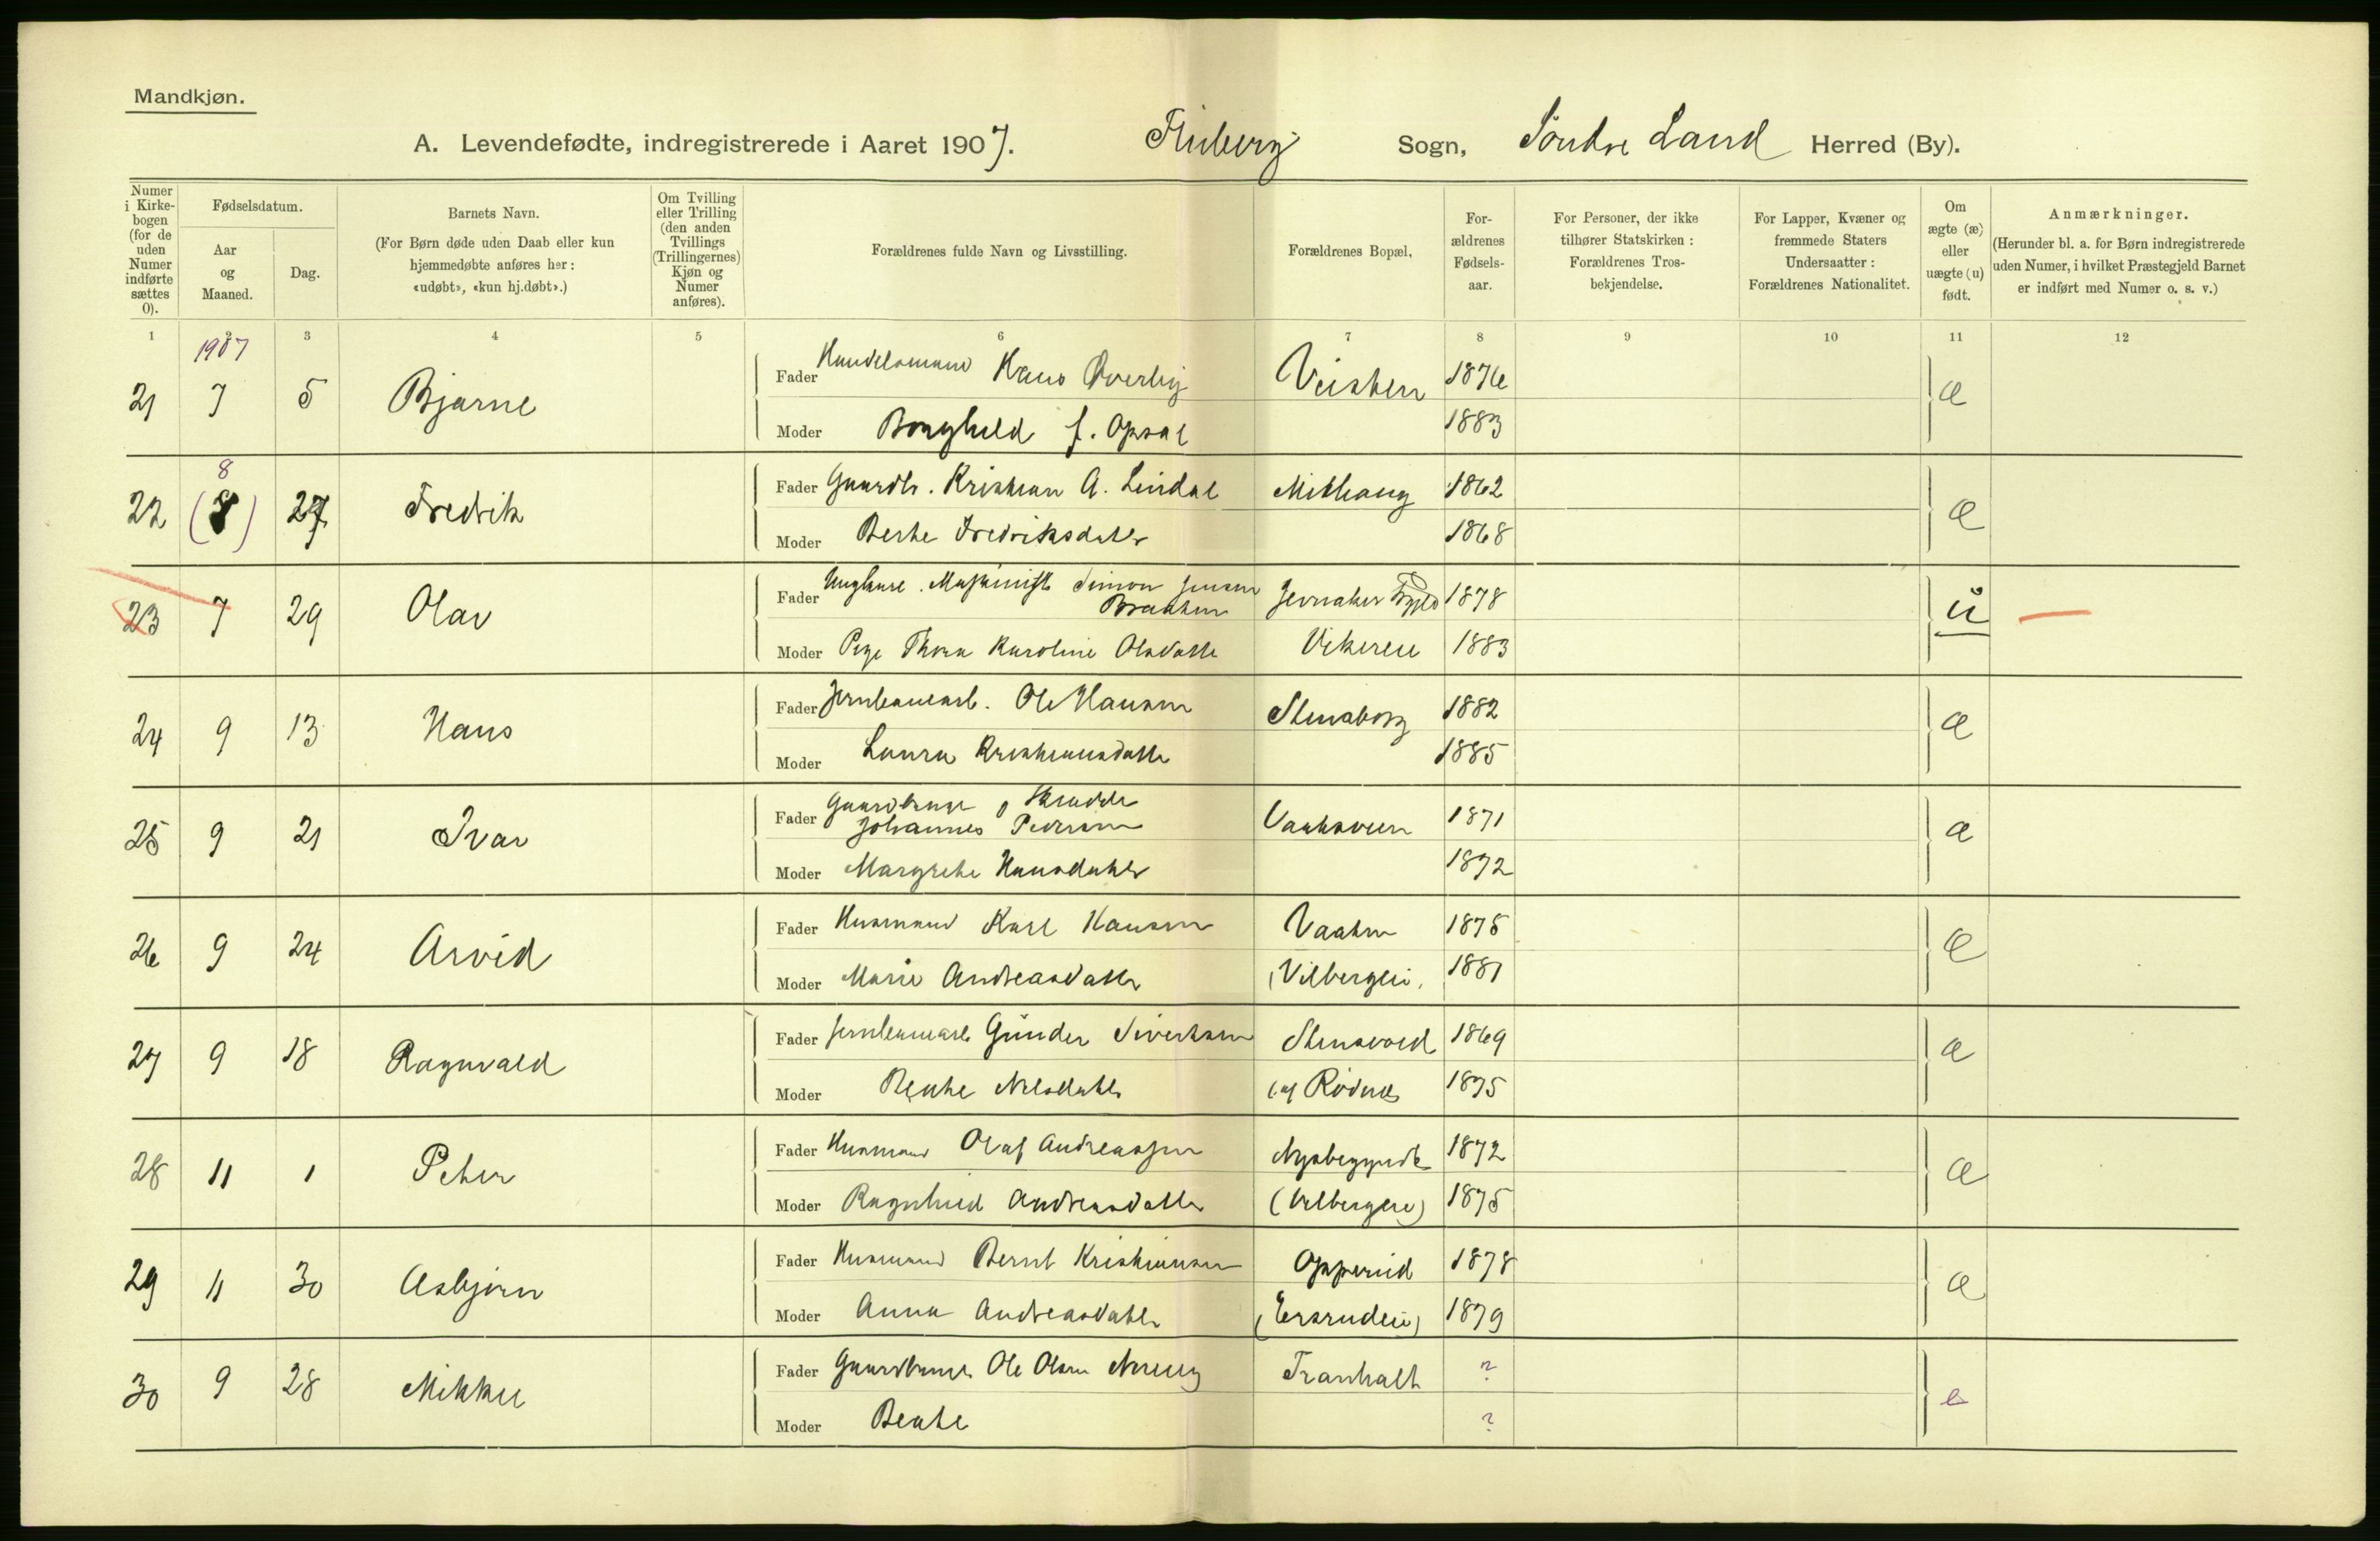 Mandkjøn.
A. Levendefødte, indregistrerede i Aaret 1907. Fluberg Sogn, Søndre Land Herred (By).
Numer i Kirkebogen (for de uden Numer indførte sættes 0).
Fødselsdatum.
Aar og Maaned.
Dag.
Barnets Navn.
(For Børn døde uden Daab eller kun hjemmedøbte anføres her: «udøbt», «kun hj.døbt».)
Om Tvilling eller Trilling (den anden Tvillings (Trillingernes) Kjøn og Numer anføres).
Forældrenes fulde Navn og Livsstilling.
Forældrenes Bopæl,
Forældrenes Fødselsaar.
For Personer, der ikke tilhører Statskirken: Forældrenes Trosbekjendelse.
For Lapper, Kvæner og fremmede Staters Undersaatter: Forældrenes Nationalitet.
Om ægte (æ) eller uægte (u) født.
Anmærkninger.
(Herunder bl. a. for Børn indregistrerede uden Numer, i hvilket Præstegjeld Barnet er indført med Numer o. s. v.)
1 2 3 4 5 6 7 8 9 10 11 12
1907
21 7 5 Bjarne Fader Handelsmand Hans Øverby 1876 æ
Moder Borghild f. Opsal 1883
8
22 (8) 27 Fredrik Fader Gaardb. Kristian A. Lindal Mithaug 1862 æ
Moder Berte Fredriksdatter 1868
23 7 29 Olav Fader Ungkarl. Maskinist Simon Jensen Braaten Jevnaker 1878 u
Moder Pige Thora Karoline Olsdatter Vikeren 1883
24 9 13 Hans Fader Jernbanearb. Ole Hansen Stensborg 1882 æ
Moder Laura Kristiansdatter 1885
25 9 21 Ivar Fader Gaardbruger og Skrædder
Johannes Pedersen 1871 æ
Moder Margrethe Hansdatter 1872
26 9 24 Arvid Fader Husmand Karl Hansen Vaaten 1875 æ
Moder Marie Andreasdatter (Vilbergei) 1881
27 9 18 Ragnvald Fader Jernbanearb Gunder Sivertsen Stensvold 1869 æ
Moder Beate Nilsdatter 1875
28 11 1 Peter Fader Husmand Olaf Andreassen 1872 æ
Moder Ragnhild Andreasdatter (Vilbergei) 1875
29 11 30 Asbjørn Fader Husmand Bernt Kristiansen Opperud 1878 æ
Moder Anna Andreasdatter (Ersrudei) 1879
30 9 28 Mikkel Fader Gaardbruger Ole Olsen Nereng Tranhalt ? e
Moder Beate ?